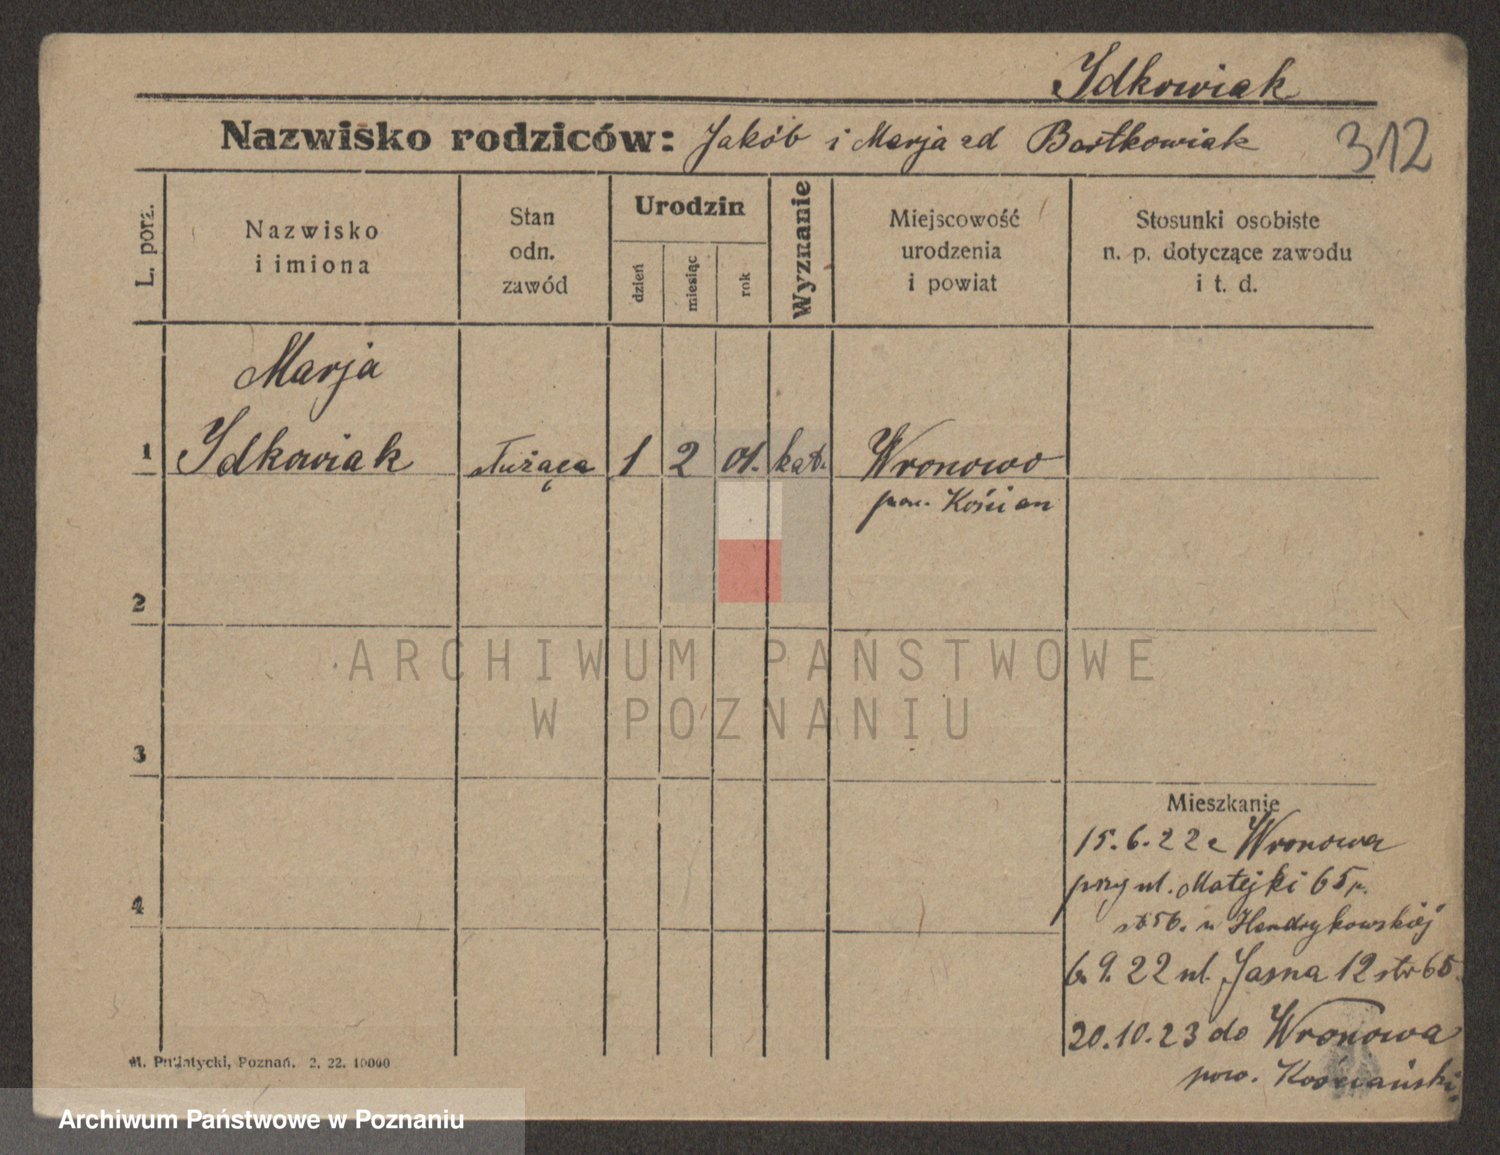 Idkowiak
Nazwisko rodziców: Jakób i Marja zd Bartkowiak 312
L. porz.
Nazwisko
i imiona
Stan
odn.
zawód
Urodzin
dzień
miesiąc
rok
Wyznanie
Miejscowość
urodzenia
i powiat
Stosunki osobiste
n. p. dotyczące zawodu
i t. d.
Marja
1 Idkowiak służąca 1 2 01. kat. Wronowo
pow. Kościan
2
ARCHIWUM PAŃSTWOWE
W POZNANIU
3
Mieszkanie
15.6.22 z Wronowa
przy ul. Matejki 65
u Hendrykowskiej
4
6.9.22 ul. Jasna 12 str 65.
20.10.23 do Wronowa
pow. Kościański.
M. Putiatycki, Poznań. 2. 22. 10000
Archiwum Państwowe w Poznaniu